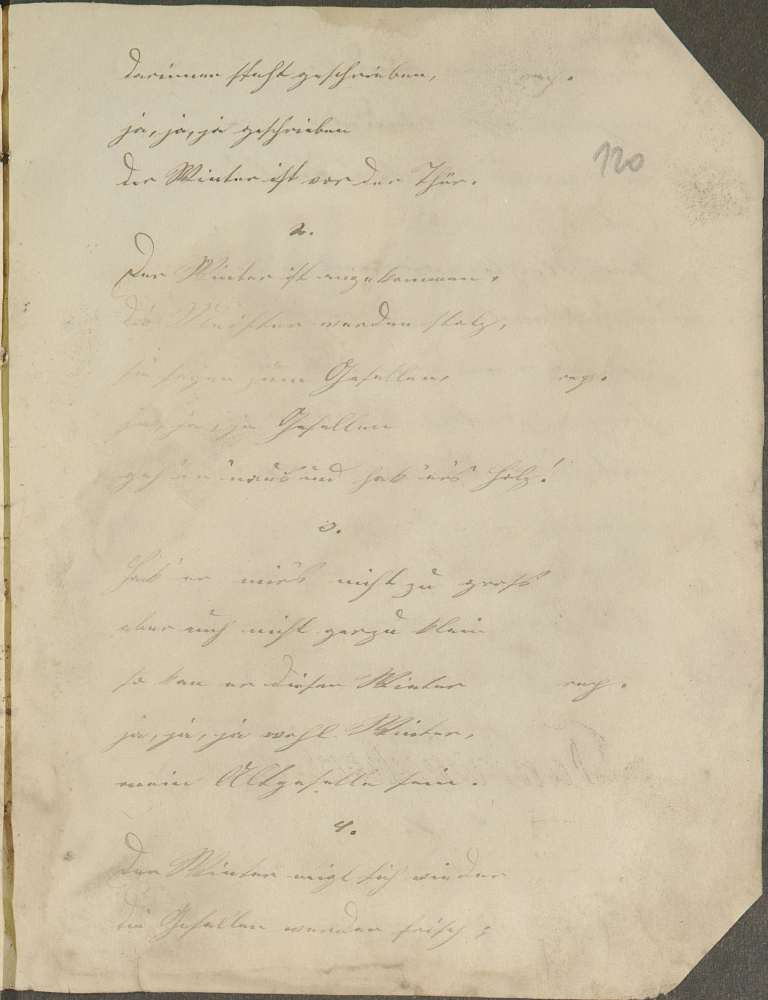 darinnen steht geschrieben, rep.
ja, ja, ja geschrieben
120
der Winter ist vor der Thür.
2.
Der Winter ist angekommen,
die Meister werden stolz,
sie sagen zum Gesellen, rep.
ja, ja, ja Gesellen
geh er 'naus und hak' er's Holz!
3.
Hak' er mir's nicht zu groß
aber auch nicht gar zu klein
so kan er diesen Winter rep.
ja, ja, ja wohl Winter,
mein Altgeselle sein.
4.
Der Winter neigt sich wieder
die Gesellen werden frisch;